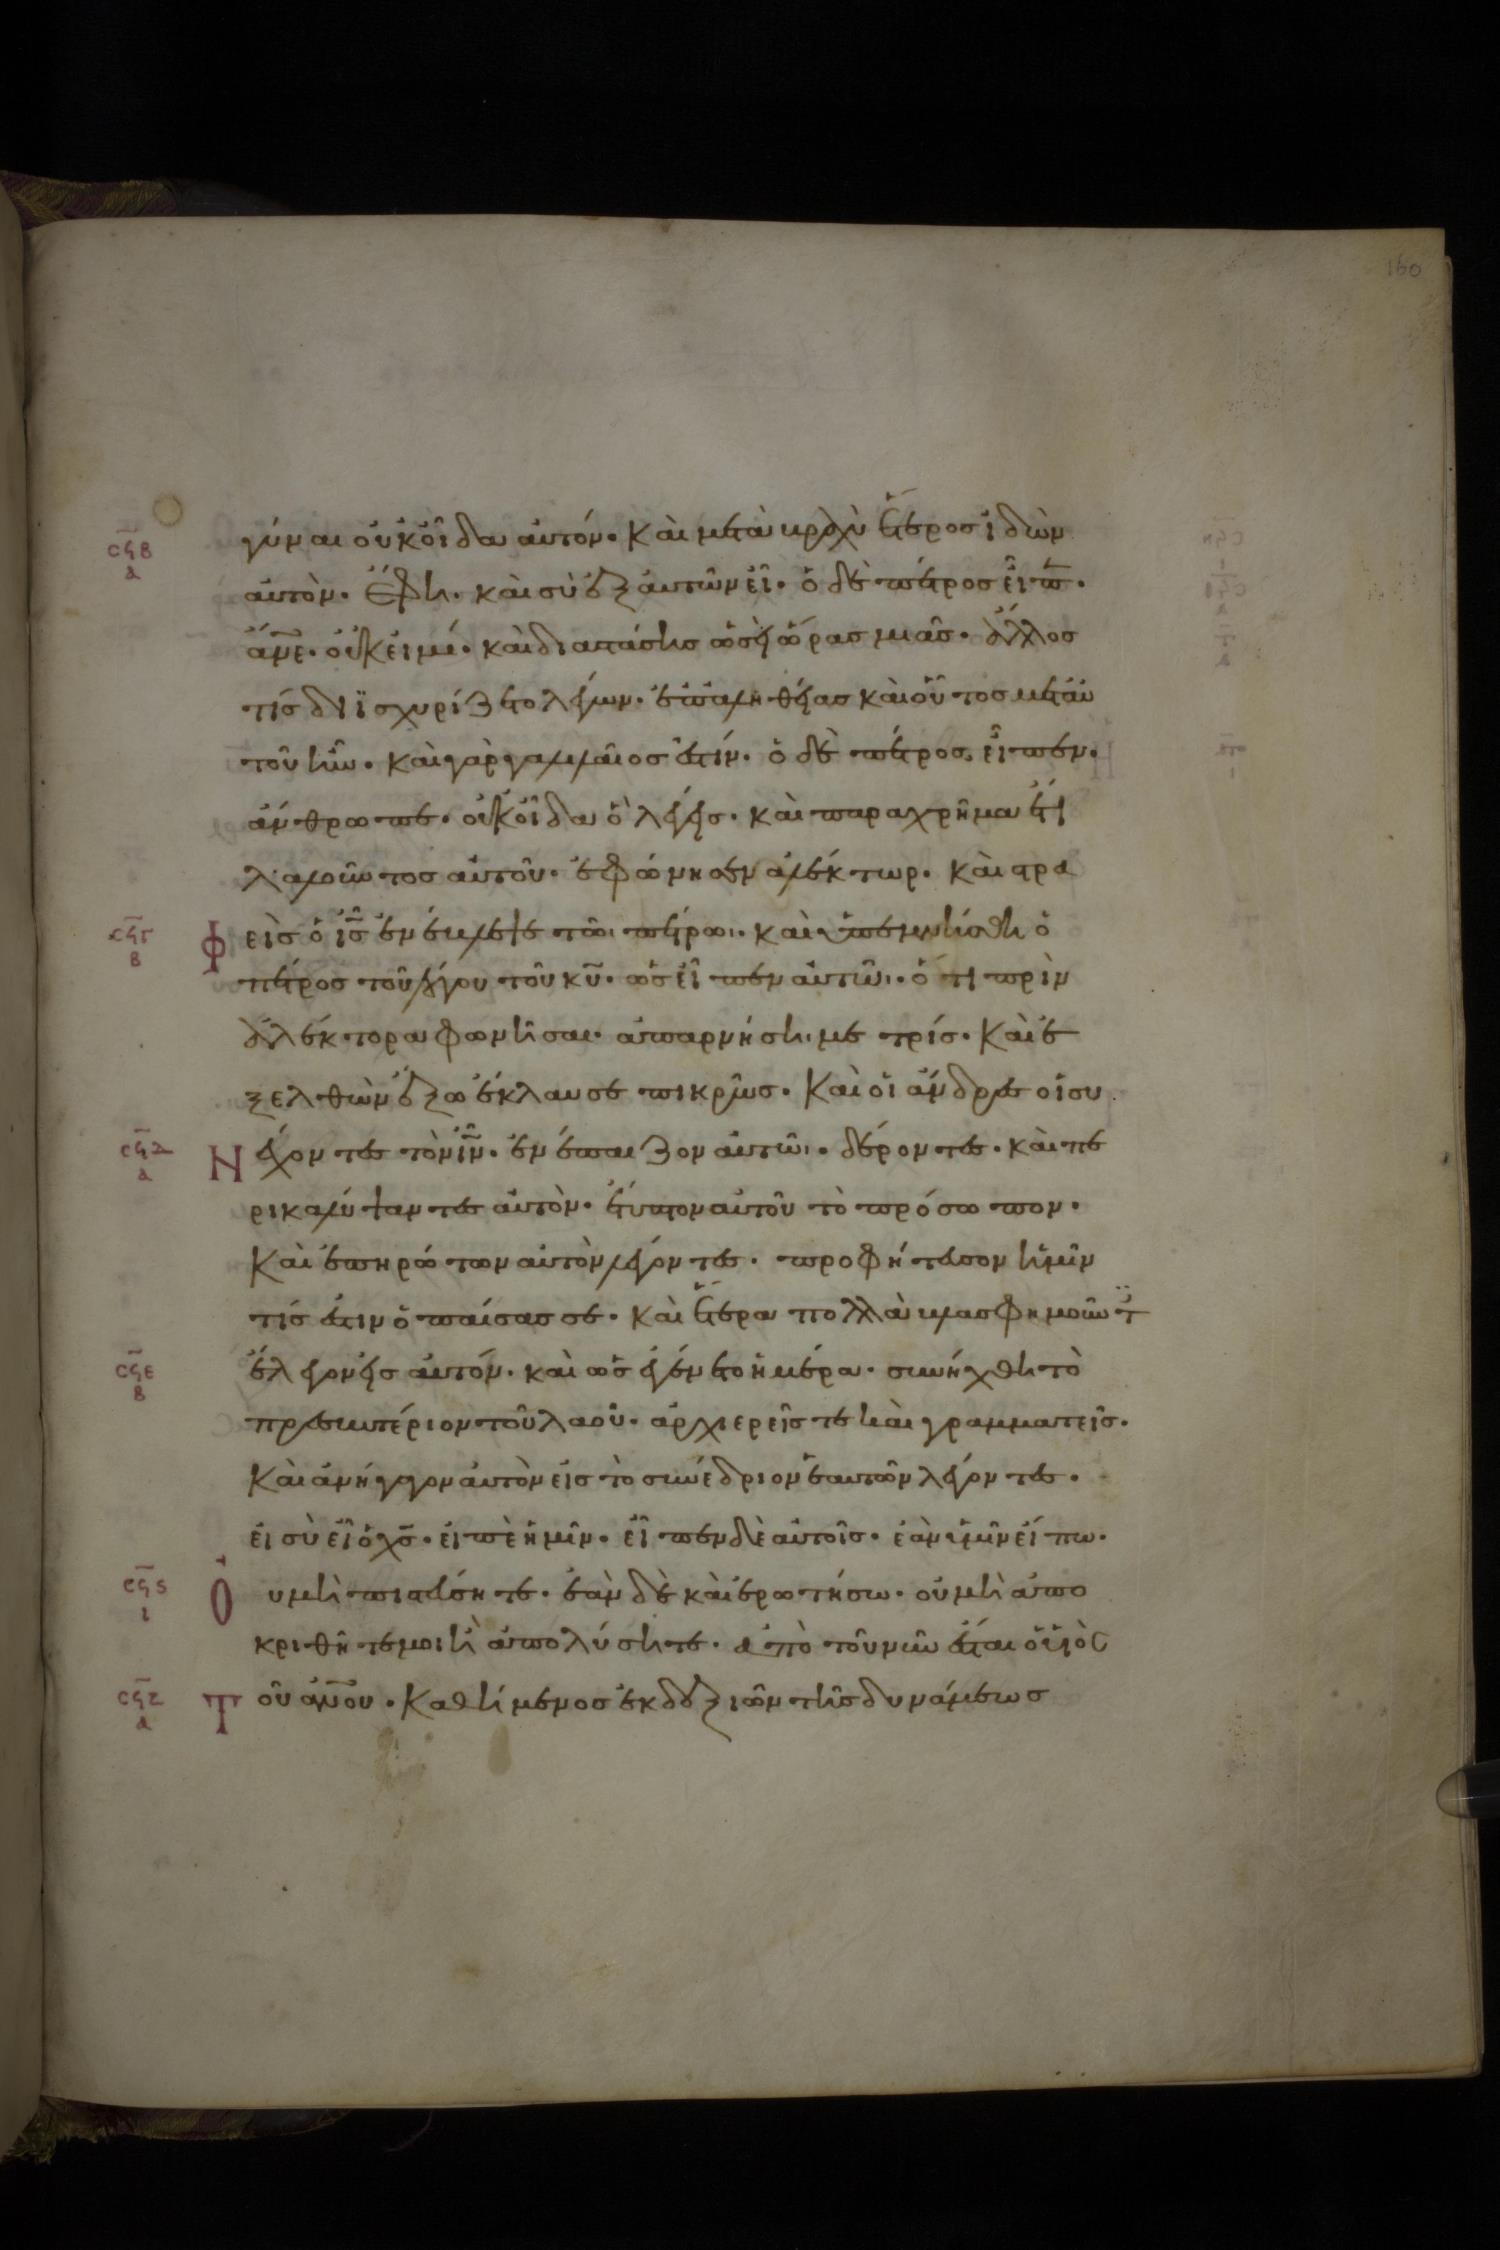 160
γύναι οὐκ οἶδα αὐτόν. Καὶ μετὰ βραχὺ ἕτερος ἰδὼν
αὐτὸν. ἔφη. καὶ σὺ ἐξ αὐτῶν εἶ. ὁ δὲ πέτρος εἶπ̅.
ἄν̅ε. οὐκ εἰμί. καὶ διαστάσης ὡσεὶ ὥρας μιᾶς. ἄλλος
τίς διϊσχυρίζετο λέγων. ἐπ' ἀληθείας καὶ οὗτος μετ' αὐ
τοῦ ἦν. καὶ γὰρ γαλιλαῖος ἐστίν. ὁ δὲ πέτρος. εἶπεν.
ἄνθρωπε. οὐκ οἶδα ὃ λέγεις. καὶ παραχρῆμα ἔτι
λαλοῦντος αὐτοῦ. ἐφώνησεν ἀλέκτωρ. καὶ στρα
cϟγ
β
Φ εὶς ὁ ι̅ς̅ ἐνέβλεψε τῶι πέτρωι. καὶ ὑπεμνήσθη ὁ
πέτρος τοῦ λόγου τοῦ κ̅υ̅. ὡς εἶπεν αὐτῶι. ὅτι πρὶν
ἀλέκτορα φωνῆσαι. ἀπαρνήσηι με τρίς. Καὶ ἐ
ξελθὼν ἔξω ἔκλαυσε πικρῶς. Καὶ οἱ ἄνδρες οἱ συ
cϟδ
α
Ν έχοντες τὸν ι̅ν̅. ἐνέπαιζον αὐτῶι. δέροντες. καὶ πε
ρικαλύψαντες αὐτὸν. ἔτυπτον αὐτοῦ τὸ πρόσωπον.
Καὶ ἐπηρώτων αὐτὸν λέγοντες. προφήτευσον ἡμῖν
τίς ἐστιν ὁ παίσας σε. καὶ ἕτερα πολλὰ βλασφημοῦντ
cϟε
β
ἔλεγον εἰς αὐτόν. καὶ ὡς ἐγένετο ἡμέρα. συνήχθη τὸ
πρεσβυτέριον τοῦ λαοῦ. ἀρχιερεῖς τε καὶ γραμματεῖς.
Καὶ ἀνήγαγον αὐτὸν εἰς τὸ συνέδριον ἑαυτῶν λέγοντες.
εἰ σὺ εἶ ὁ χ̅ς̅. εἰπὲ ἡμῖν. εἶπεν δὲ αὐτοῖς. ἐὰν ὑμῖν εἴπω.
cϟς
ι
Ο υ μὴ πιστεύσητε. ἐὰν δὲ καὶ ἐρωτήσω. οὐ μὴ ἀπο
κριθῆτέ μοι ἢ ἀπολύσητε. ἀπὸ τοῦ νῦν ἔσται ὁ υἱὸς
cϟζ
α
Τ οῦ ἀν̅ου. Καθήμενος ἐκ δεξιῶν τῆς δυνάμεως
cϟβ
α